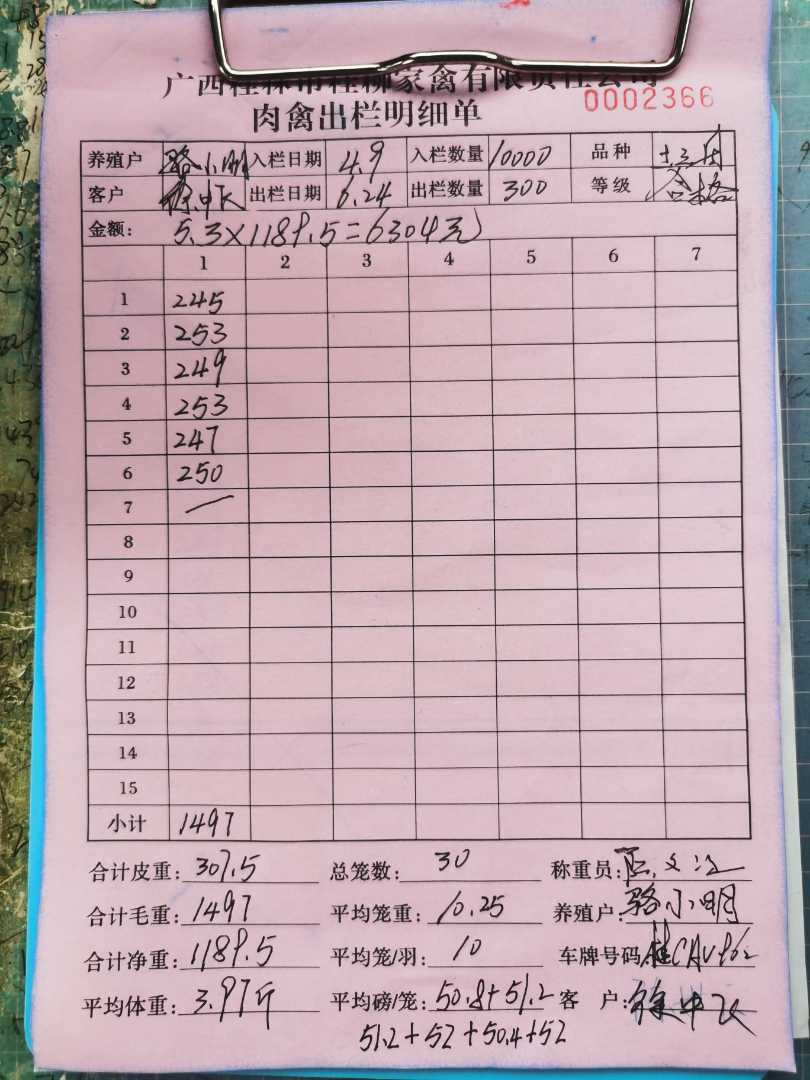 广西桂林市桂柳家禽有限责任公司
肉禽出栏明细单 0002366
养殖户 骆小明 入栏日期 4.9 入栏数量 10000 品种
客户 徐中飞 出栏日期 6.24 出栏数量 300 等级 合格
金额: 5.3×1189.5=6304元
1 2 3 4 5 6 7
1 245
2 253
3 249
4 253
5 247
6 250
7 —
8
9
10
11
12
13
14
15
小计 1497
合计皮重: 307.5 总笼数: 30 称重员:
合计毛重: 1497 平均笼重: 10.25 养殖户: 骆小明
合计净重: 1189.5 平均笼/羽: 10 车牌号码:
平均体重: 3.97斤 平均磅/笼: 50.8+51.2 客 户: 徐中飞
51.2+52+50.4+52